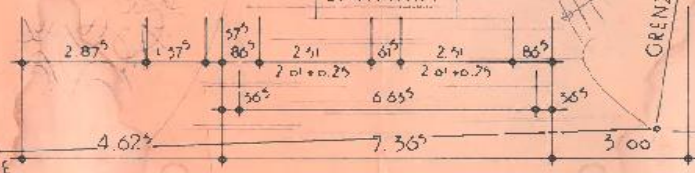 37⁵
2.87⁵ 1.37⁵ 86⁵ 2.51 61⁵ 2.51 86⁵
2.01+0.25 2.01+0.25
36⁵ 6.63⁵ 36⁵
4.62⁵ 7.36⁵ 3.00
GRENZ